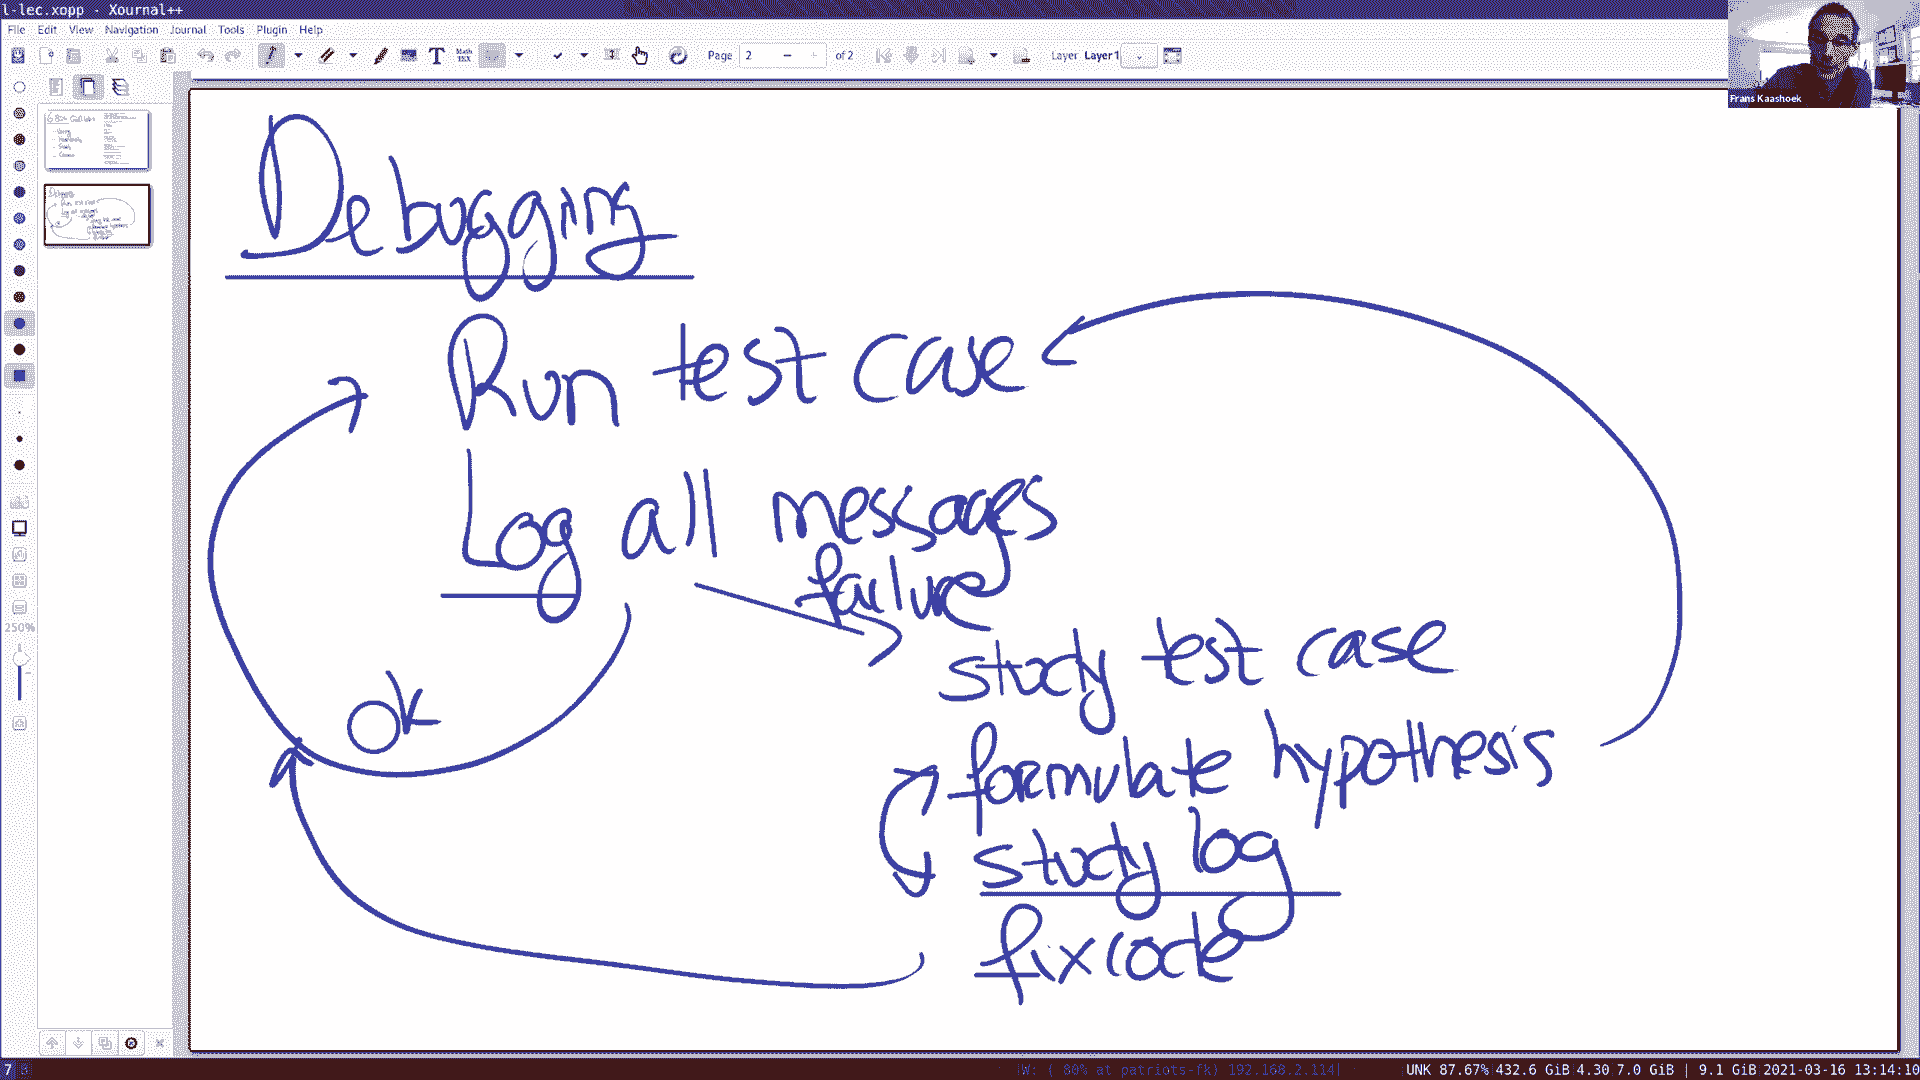 l-lec.xopp - Xournal++
File Edit View Navigation Journal Tools Plugin Help
Page 2 of 2 Layer Layer1
Frans Kaashoek
Debugging
Run test case
Log all messages
failure
study test case
ok
formulate hypothesis
study log
fix code
250%
7 8 W: ( 80% at patriots-fk) 192.168.2.114| UNK 87.67%|432.6 GiB 4.30 7.0 GiB | 9.1 GiB 2021-03-16 13:14:10